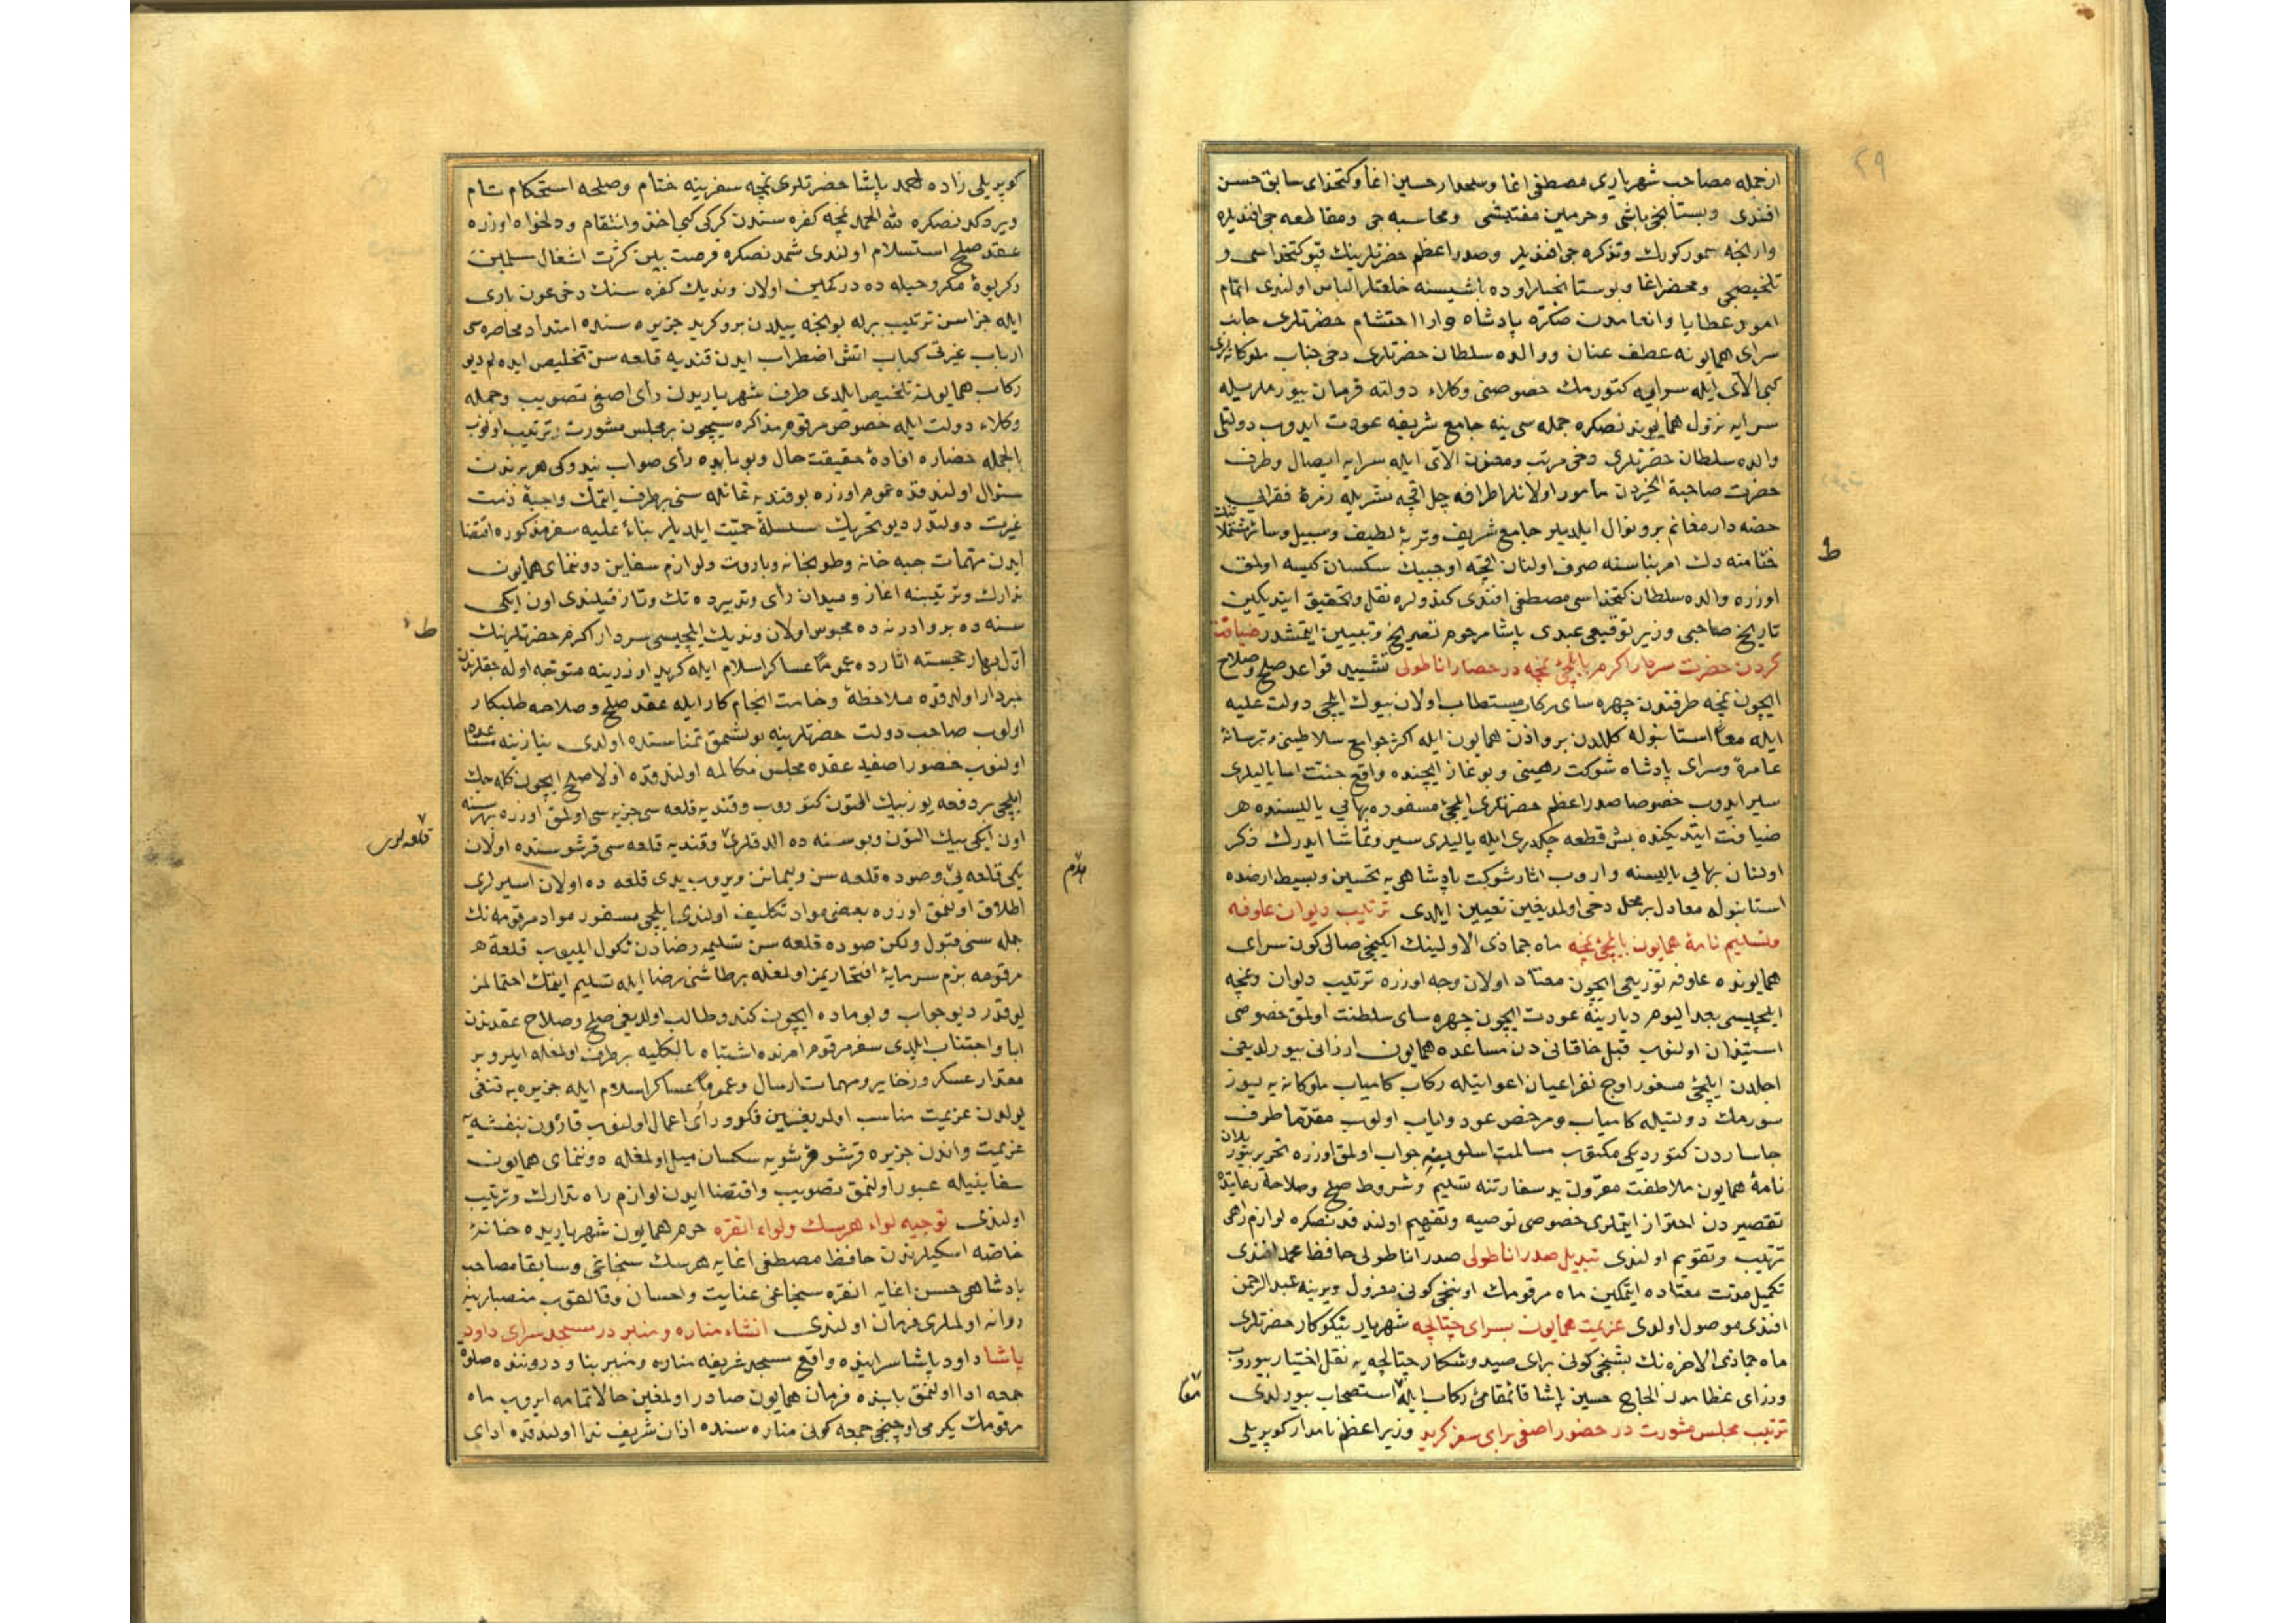 ٢٩
ازجمله مصاحب شهریاری مصطفی اغا وسلحدار حسین اغا وکتخدای سابق حسن
افندی وبستانجی باشی وحرمین مفتیشی ومحاسبه جی ومقاطعه جی افندیلره
وارنجه سمور کورك وتذکره جی افندیلر وصدر اعظم حضرتلرینك قپو کتخداسی و
تلخیصجی ومحضر اغا وبوستانجیلر اوده باشیسنه خلعتلر الباس اولندی اتمام
امور عطایا وانعامدن صکره پادشاه دارا احتشام حضرتلری جانب
سرای همایونه عطف عنان ووالده سلطان حضرتلری دخی جناب ملوکانه لری
کبی الای ایله سرایه کتورمك خصوصنی وکلاء دولته فرمان بیورملریله
سرایه نزول همایوندنصکره جمله سی ینه جامع شریفه عودت ایدوب دولتلی
والده سلطان حضرتلری دخی مرتب ومعنون الای ایله سرایه ایصال وطرف
حضرت صاحبة الخیردن مأمور اولانلر اطرافه چل اقچه نثریله زمرۀ فقرایی
حصه دار مغانم بر ونوال ایلدیلر جامع شریف وتربۀ لطیف وسبیل وسائر مشتملاتنك
ختامنه دك امر بناسنه صرف اولنان اقچه اوچبیك سکسان کیسه اولمق
اوزره والده سلطان کتخداسی مصطفی افندی کندولره نقل وتحقیق ایتدیکین
تاریخ صاحبی وزیر توقیعی عبدی پاشا مرحوم تصریح وتبیین ایتمشدر ضیافت
کردن حضرت سردار اکرم با ایلچئ نمچه در حصار اناطولی تشیید قواعد صلح وصلاح
ایچون نمچه طرفندن چهره سای رکاب مستطاب اولان بیوك ایلچی دولت علیه
ایله معًا استانبوله کلدن برو اذن همایون ایله اکثر جوامع سلاطینی وترسانۀ
عامرۀ وسرای پادشاه شوکت رهینی وبوغاز ایچنده واقع جنت اسا یالیلری
سیر ایدوب خصوصا صدر اعظم حضرتلری ایلچئ مسفوره بهائی یالیسنده هر
ضیافت ایتدیکنده بش قطعه چکدری ایله یالیلری سیر وتماشا ایدرك ذکر
اولنان بهائی یالیسنه واروب اثار شوکت پادشاهی یه تحسین وبسیط ارضده
استانبوله معادل بر محل دخی اولمدیغین تعیین ایلدی ترتیب دیوان علوفه
وتسلیم نامۀ همایون با ایلچئ نمچه ماه جماذی الاولینك ایکنجی صالی کون سرای
همایونده علوفه توزیعی ایچون معتاد اولان وجه اوزره ترتیب دیوان ونمچه
ایلچیسی بعد الیوم دیارینه عودت ایچون چهره سای سلطنت اولمق خصوصی
استیذان اولنوب قبل خاقانی دن مساعده همایون ارزانی بیورلدیغی
اجلدن ایلچئ مسفور اوچ نفر اعیان اعوانیله رکاب کامیاب ملوکانه یه یوز
سورمك دولتیله کامیاب ومرخص عود وایاب اولوب مقدّما طرف
جاساردن کتوردیکی مکتوب مسالمت اسلوبینه جواب اولمق اوزره تحریر بیوریلان
نامۀ همایون ملاطفت مقرون ید سفارتنه تسلیم وشروط صلح وصلاحه رعایتده
تقصیردن احتراز ایتملری خصوصی توصیه وتفهیم اولندقدنصکره لوازم راهی
ترتیب وتقویم اولندی تبدیل صدر اناطولی صدر اناطولی حافظ محمد افندی
تکمیل مدّت معتاده ایتمکین ماه مرقومك اوننجی کونی معزول ویرینه عبد الرحمن
افندی موصول اولدی عزیمت همایون بسرای چتالجه شهریار نیکوکار حضرتلری
ماه جماذی الاخره نك بشنجی کونی برای صید وشکار چتالجه یه نقل اختیار بیوروب
وزرای عظامدن الحاج حسین پاشا قائمقامئ رکاب ایله استصحاب بیورلدی
ترتیب مجلس مشورت در حضور اصفی برای سفر کرید وزیر اعظم نامدار کوپریلی
ط
معًا
کوپریلی زاده احمد پاشا حضرتلری نمچه سفرینه ختام وصلحه استحکام تام
ویردکدنصکره لله الحمد نمچه کفره سندن کرکی کبی اخذ وانتقام ودلخواه اوزره
عقد صلح استسلام اولندی شمدنصکره فرصت بین کثرت اشغال مسلمین
دکریوۀ مکر وحیله ده در کمین اولان وندیك کفره سنك دخی عون باری
ایله جزاسن ترتیب برله بو انجه ییلدن برو کرید جزیره سنده امتداد محاصره سی
ارباب غیرتی کباب اتش اضطراب ایدن قندیه قلعه سن تخلیص ایده لم دیو
رکاب همایونه تلخیص ایلدی طرف شهریاریدن رأی اصفی تصویب وجمله
وکلاء دولت ایله خصوص مرقوم مذاکره سیچون بر مجلس مشورت ترتیب اولنوب
بالجمله حضاره افادۀ حقیقت حال وبو بابده رأی صواب ندوکی هر برندن
سؤال اولندقده عموم اوزره بو قندیه غائله سنی برطرف ایتمك واجبۀ ذمت
غیرت دولتدر دیو تحریك سلسلۀ حمیّت ایلدیلر بناءً علیه سفر مذکوره اقتضا
ایدن مهمات جبه خانه وطوپخانه وباروت ولوازم سفاین دوننمای همایون
تدارك وترتیبنه اغاز ومیدان رأی وتدبیرده تك وتاز قیلندی اون ایکی
سنه ده برو ادرنه ده محبوس اولان وندیك ایلچیسی سردار اکرم حضرتلرینك
اوّل بهار خجسته اثارده عمومًا عساکر اسلام ایله کرید اوزرینه متوجه اوله جقلرندن
خبردار اولدقده ملاحظۀ وخامت انجام کار ایله عقد صلح وصلاحه طلبکار
اولوب صاحب دولت حضرتلرینه بولشمق تمناسنده اولدی نیازینه مساعده
اولنوب حضور اصفیده عقد مجلس مکالمه اولندقده اوّلا صلح ایچون کله جك
ایلچی بر دفعه یوز بیك التون کتوروب وقندیه قلعه سی جزیه سی اولمق اوزره بهر سنه
اون ایکی بیك التون وبو سنه ده الدقلری وقندیه قلعه سی قرشوسنده اولان
یکی قلعه یی وصوده قلعه سن ولیمانن ویروب یدی قلعه ده اولان اسیرلری
اطلاق اولنمق اوزره بعضی مواد تکلیف اولندی ایلچی مسفور مواد مرقومه نك
جمله سنی قبول ولکن صوده قلعه سن تسلیمه رضادن نکول ایلیوب قلعۀ
مرقومه بزم سرمایۀ افتخاریمز اولمغله بر طاشنی رضا ایله تسلیم ایتمك احتمالمز
یوقدر دیو جواب وبو ماده ایچون کندو طالب اولدیغی صلح وصلاح عقدندن
ابا واجتناب ایلدی سفر مرقوم امرنده اشتباه بالکلیه برطرف اولمغله ایلرو بر
مقدار عسکر وذخایر ومهمات ارسال وعمومًا عساکر اسلام ایله جزیره یه قنغی
یولدن عزیمت مناسب اولدیغین فکر ورأی اعمال اولنوب قارەدن بنفشه یه
عزیمت واندن جزیره قرشو قرشویه سکسان میل اولمغله دوننمای همایون
سفاینیله عبور اولنمق تصویب واقتضا ایدن لوازم راه تدارك وترتیب
اولندی توجیه لواء هرسك ولواء انقره حرم همایون شهریاریده خانۀ
خاصّه اسکیلرندن حافظ مصطفی اغایه هرسك سنجاغی وسابقا مصاحب
پادشاهی حسن اغایه انقره سنجاغی عنایت واحسان وقالقوب منصبلرینه
روانه اولملری فرمان اولندی انشاء مناره ومنبر در مسجد سرای داود
پاشا داود پاشا سراینده واقع مسجد شریفه مناره ومنبر بنا ودروننده صلوة
جمعه ادا اولنمق بابنده فرمان همایون صادر اولمغین حالا تمامه ایروب ماه
مرقومك یکرمی اوچنجی جمعه کونی مناره سنده اذان شریف ندا اولندقده ادای
ط